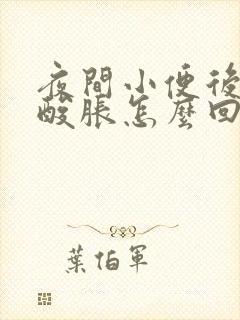 夜間小便後
酸脹怎麼回
葉伯軍